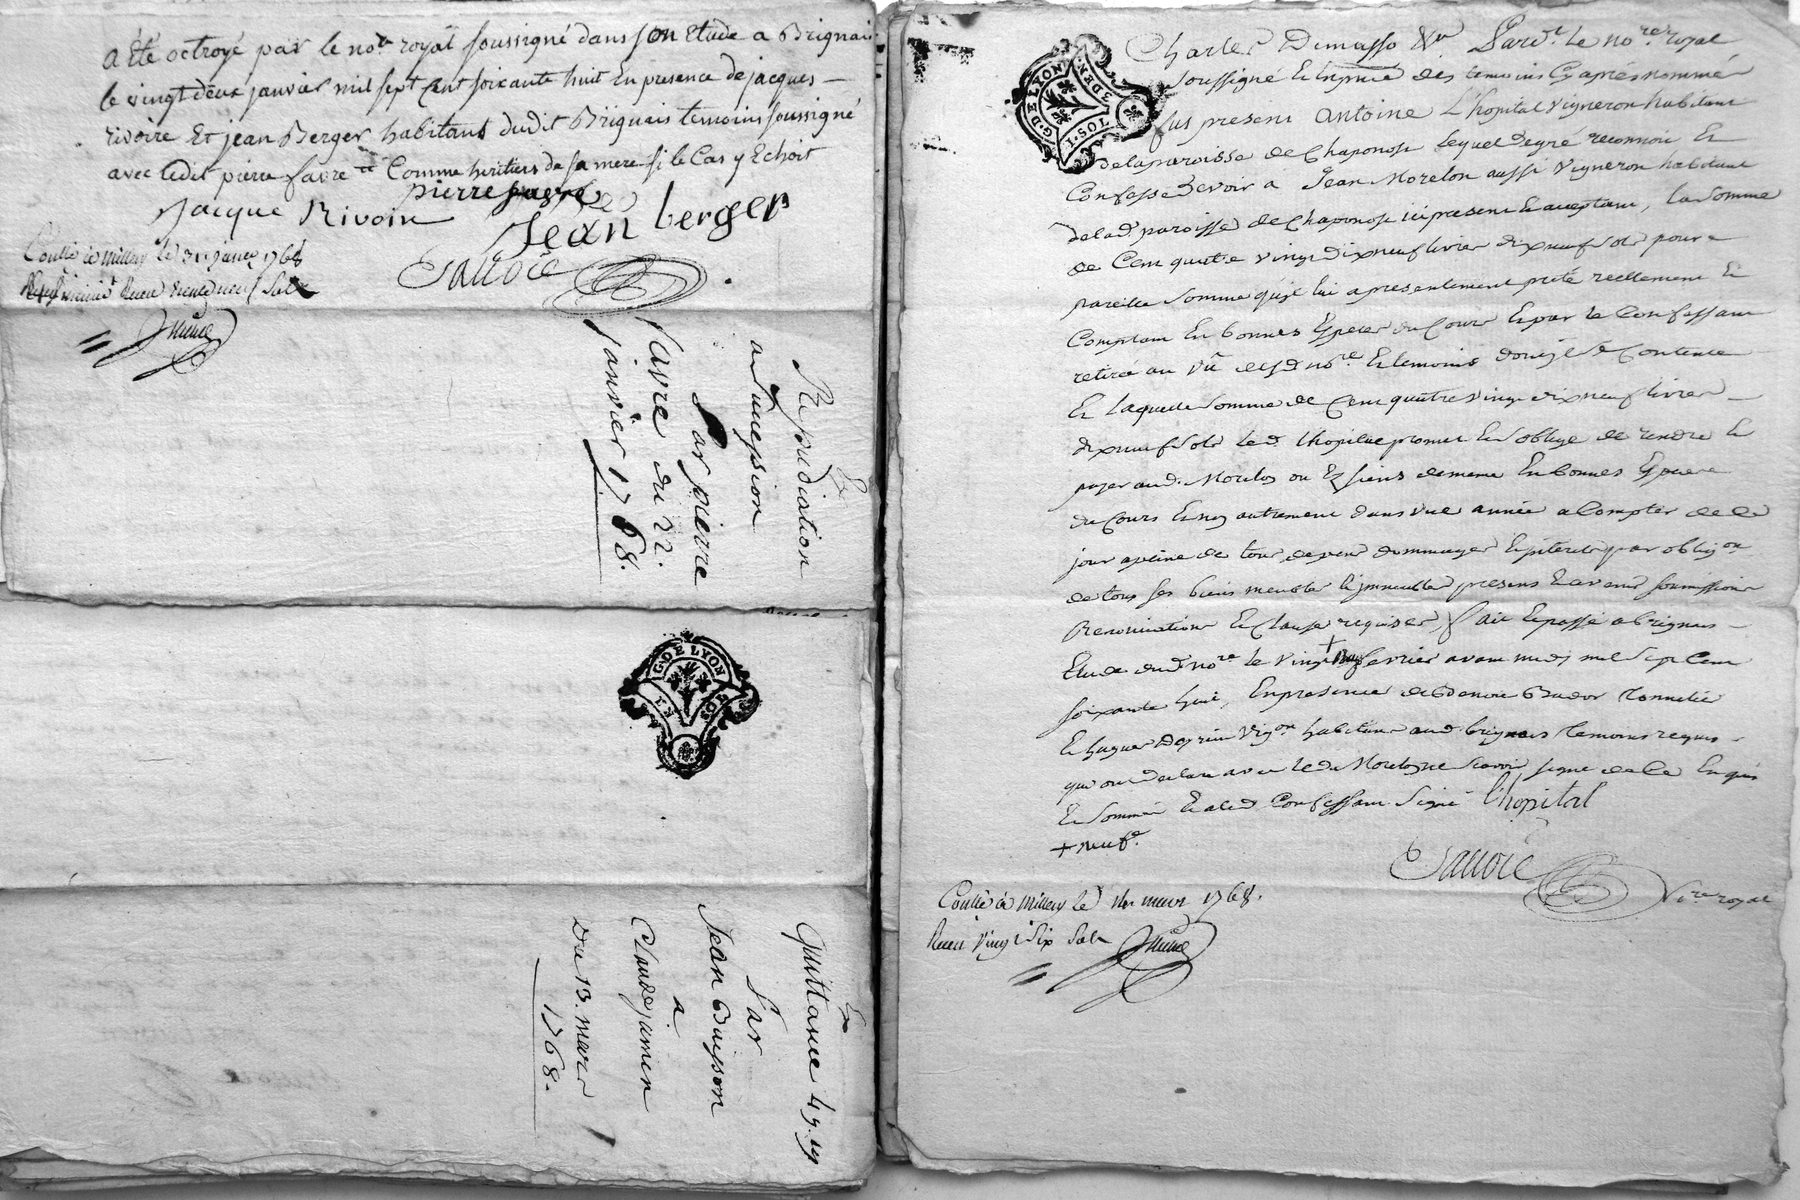 a été octroyé par le nore royal soussigné dans son Etude a Brignais
le vingt deux janvier mil sept cent soixante huit En presence de jacques
rivoire Et jean Berger habitants dudit Brignais temoins soussigné
avec ledit pierre favre Comme heritiers de sa mere si le Cas y Echoit
pierre favre
Jacque Rivoire
Jean berger
Sauoie
à millery le 31 janer 1768
Repudiation
a succession
Par pierre
favre du 22.
janvier 1768.
G. DE LYON
SOL
Ex
Quittance 49
Par
Jean Buisson
a
Claude jamen
Du 13. mars
1768.
G. DE LYON
3 DEN
1 SOL
Par dt le nore royal
soussigné Et En pnce des temoins Cy après nommés
fus present antoine L'hopital vigneron habitant
de la paroisse de Chaponost lequel de gré reconnoit Et
Confesse devoir a Jean Morelon aussi vigneron habitant
de lad. paroisse de Chaponost ici present Et acceptant, la somme
de Cent quatre vingt dix neuf livres dix neuf sols pour
pareille somme qu'il lui a presentement preté reellement Et
Comptant En bonnes Especes du Cours Et par le Confessant
retirée au vû desd. nore Et temoins dont il se Contente
Et laquelle somme de Cent quatre vingt dix neuf livres
dix neuf sols led. lhopital promet Et s'oblige de rendre Et
payer aud. Morelon ou Es siens de meme En bonnes Especes
du Cours Et non autrement dans une année a Compter de ce
jour a peine de tous depens dommages Et interets par obligon
de tous ses biens meubles Et immeubles presens Et avenir soumissions
Renonciations Et Clauses requises, fait Et passé a Brignais
Etude dud. nore le vingt + fevrier avant midy mil sept Cent
soixante huit, En presence de
habitans aud. brignais temoins requis
qui ont declaré avec led. Morelon ne savoir signer de ce Enquis
Et sommés Et a led. Confessant signé l'hopital
+ neuf.
Sauoie
Nore royal
à millery le mars 1768.
Receu vingt six sols